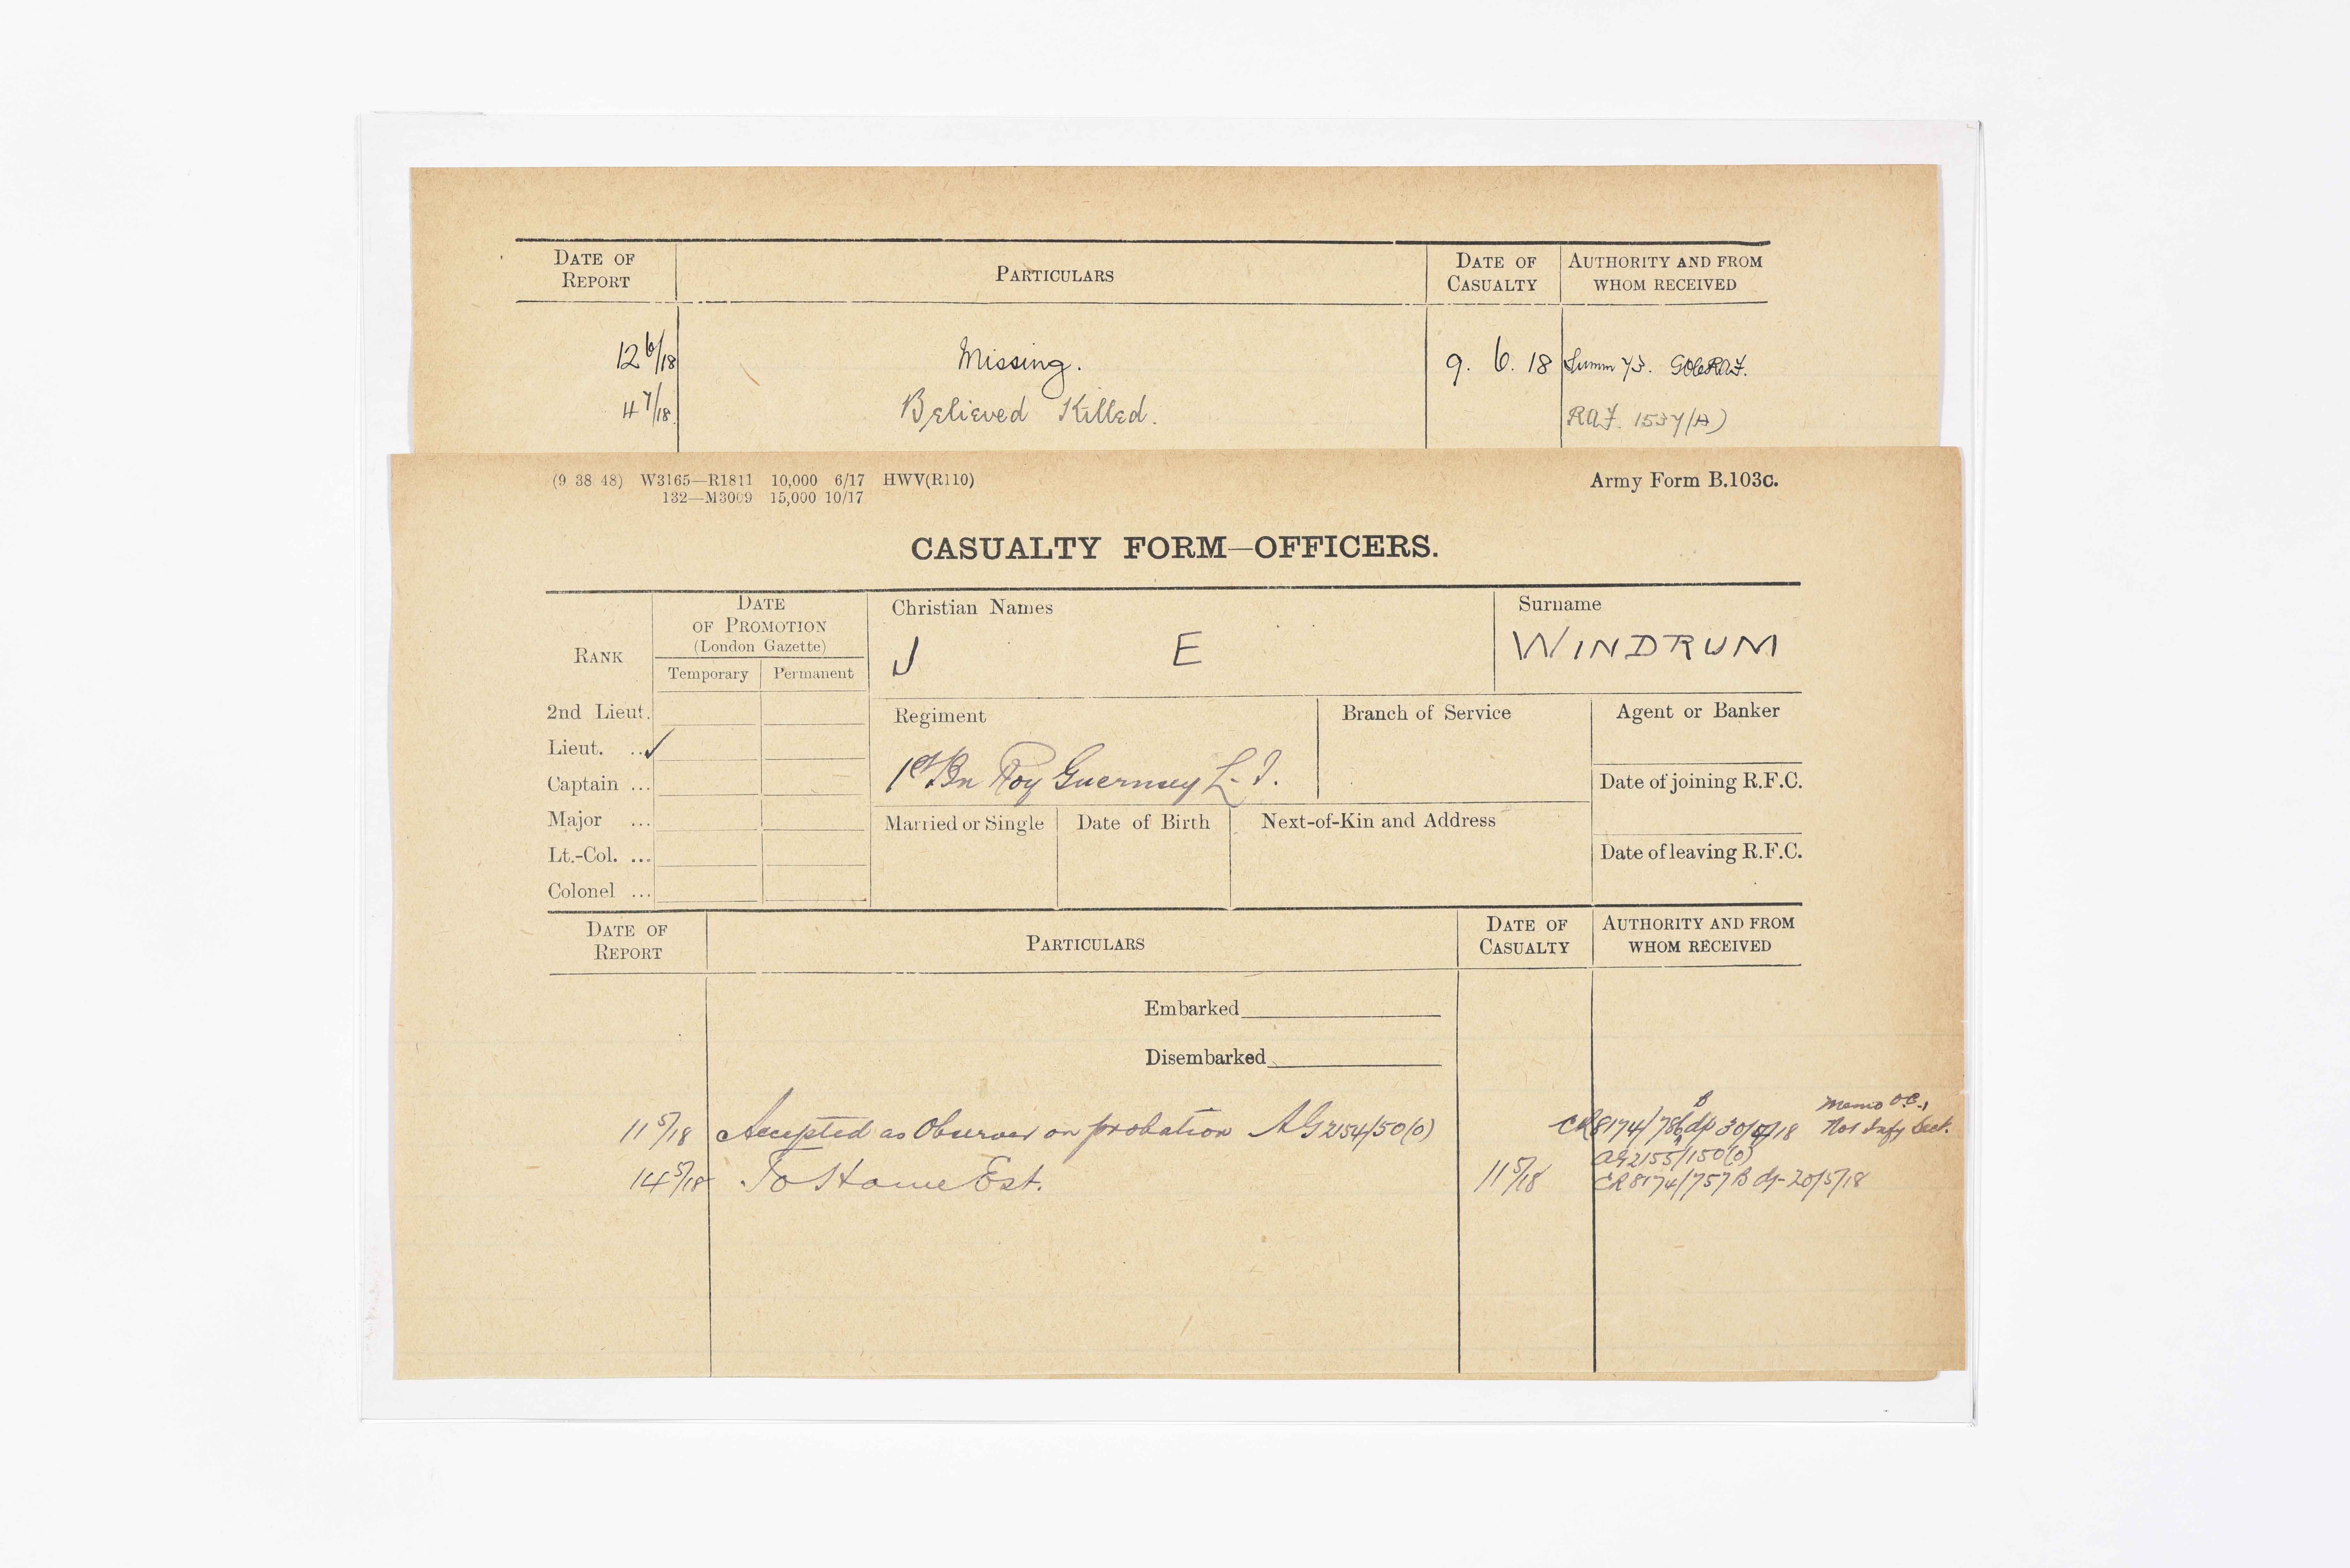 DATE OF REPORT PARTICULARS DATE OF CASUALTY AUTHORITY AND FROM WHOM RECEIVED
12 6/18 Missing. 9. 6. 18 Summ 73. GOCRAF.
4 7/18 Believed Killed. RAF. 1537/(A)
(9 38 48) W3165—R1811 10,000 6/17 HWV(R110) Army Form B.103c.
132—M3009 15,000 10/17
CASUALTY FORM—OFFICERS.
RANK
DATE OF PROMOTION (London Gazette)
Temporary Permanent
Christian Names
J E
Surname
WINDRUM
2nd Lieut.
Lieut. .. ✓
Captain ...
Major ...
Lt.-Col. ...
Colonel ...
Regiment
1st Bn Roy Guernsey L. I.
Branch of Service
Agent or Banker
Date of joining R.F.C.
Married or Single Date of Birth Next-of-Kin and Address
Date of leaving R.F.C.
DATE OF REPORT PARTICULARS DATE OF CASUALTY AUTHORITY AND FROM WHOM RECEIVED
Embarked
Disembarked
11 5/18 Accepted as Observer on probation AG2154/50(0) Memo O.C.,
CR8174/ No1 Infy Sect.
AG2155/150(0)
14 5/18 To Home Est. 11 5/18 CR8174/757B d/- 20/5/18